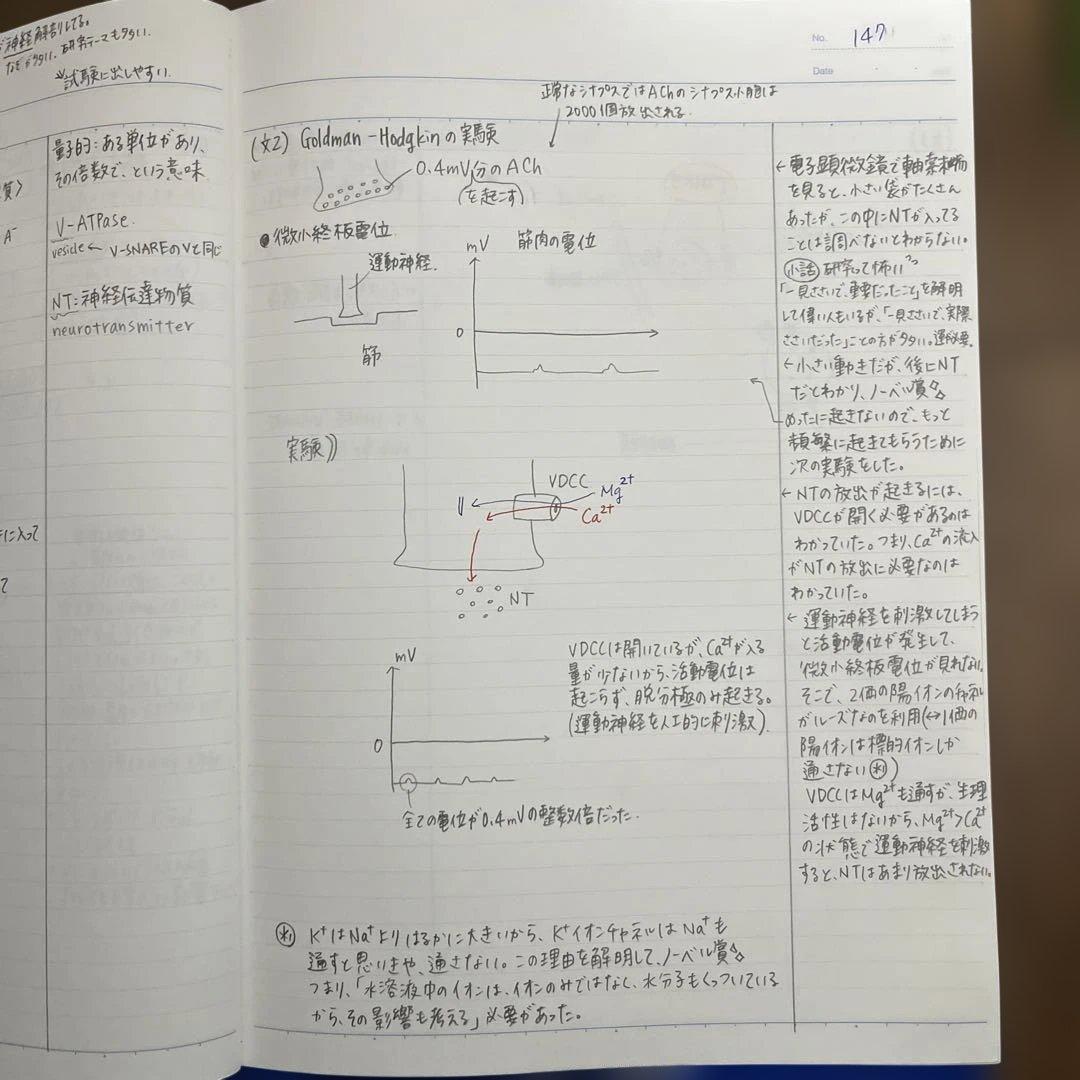 神経解剖してる。
なぞが多い。研究テーマも多い。
※試験に出しやすい。
質〉
A⁻
に入って
て
量子的:ある単位があり、
その倍数で、という意味
V-ATPase.
vesicle ← V-SNAREのVと同じ
NT:神経伝達物質
neurotransmitter
No. 147
Date
正常なシナプスではAChのシナプス小胞は
2000個放出される
(文2) Goldman-Hodgkinの実験
0.4mV分のACh
(を起こす)
●微小終板電位
運動神経.
筋
mV
筋肉の電位
0
実験))
VDCC
Mg²⁺
Ca²⁺
NT
mV
0
VDCCは開いているが、Ca²⁺が入る
量が少ないから、活動電位は
起こらず、脱分極のみ起きる。
(運動神経を人工的に刺激).
全ての電位が0.4mVの整数倍だった.
※1 K⁺はNa⁺よりはるかに大きいから、K⁺イオンチャネルはNa⁺も
通すと思いきや、通さない。この理由を解明して、ノーベル賞
つまり、「水溶液中のイオンは、イオンのみではなく、水分子もくっついている
から、その影響も考える」必要があった。
←電子顕微鏡で軸索末端
を見ると、小さい袋がたくさん
あったが、この中にNTが入ってる
ことは調べないとわからない。
小話 研究って怖い
「一見ささいで、重要だったこと」を解明
して偉い人もいるが、「一見ささいで、実際
ささいだった」ことの方が多い。運必要.
←小さい動きだが、後にNT
だとわかり、ノーベル賞
めったに起きないので、もっと
頻繁に起きてもらうために
次の実験をした。
←NTの放出が起きるには、
VDCCが開く必要があるのは
わかっていた。つまり、Ca²⁺の流入
がNTの放出に必要なのは
わかっていた。
←運動神経を刺激してしまう
と活動電位が発生して、
微小終板電位が見れない。
そこで、2価の陽イオンのチャネル
がルーズなのを利用(↔1価の
陽イオンは標的イオンしか
通さない※1)
VDCCはMg²⁺も通すが、生理
活性はないから、Mg²⁺>Ca²⁺
の状態で運動神経を刺激
すると、NTはあまり放出されない。